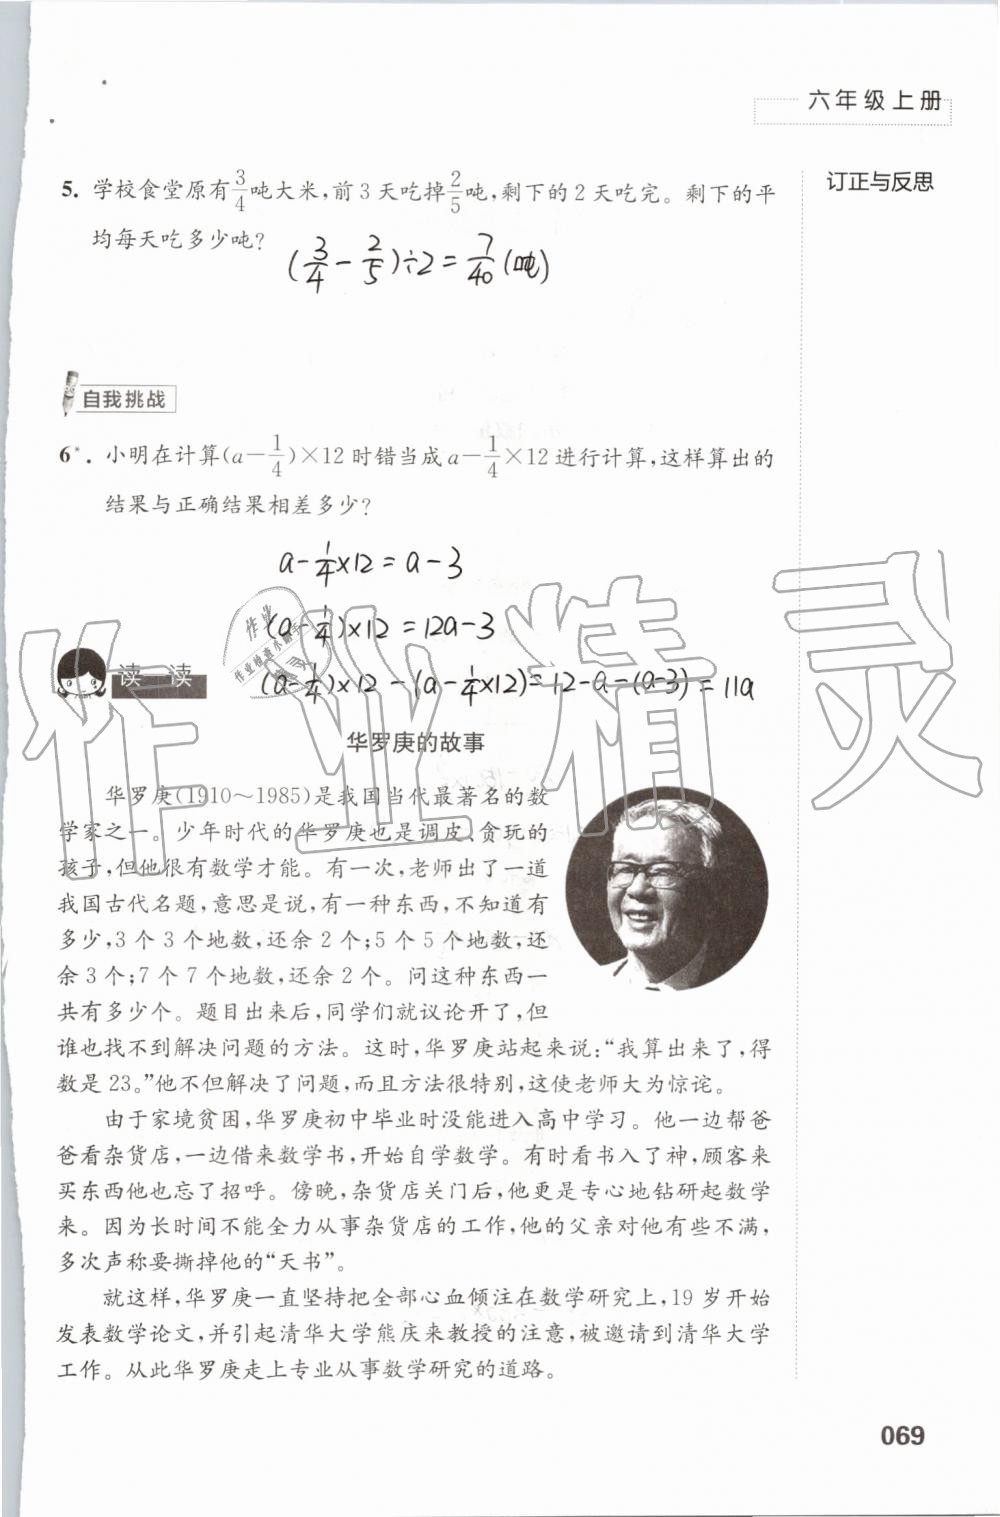 六年级上册
订正与反思
5. 学校食堂原有3/4吨大米,前3天吃掉2/5吨,剩下的2天吃完。剩下的平
均每天吃多少吨?
(3/4-2/5)÷2=7/40(吨)
自我挑战
6*. 小明在计算(a-1/4)×12时错当成a-1/4×12进行计算,这样算出的
结果与正确结果相差多少?
a-1/4×12=a-3
(a-1/4)×12=12a-3
(a-1/4)×12-(a-1/4×12)=12-a-(a-3)=11a
读一读
华罗庚的故事
华罗庚(1910～1985)是我国当代最著名的数
学家之一。少年时代的华罗庚也是调皮、贪玩的
孩子,但他很有数学才能。有一次,老师出了一道
我国古代名题,意思是说,有一种东西,不知道有
多少,3个3个地数,还余2个;5个5个地数,还
余3个;7个7个地数,还余2个。问这种东西一
共有多少个。题目出来后,同学们就议论开了,但
谁也找不到解决问题的方法。这时,华罗庚站起来说:“我算出来了,得
数是23。”他不但解决了问题,而且方法很特别,这使老师大为惊诧。
由于家境贫困,华罗庚初中毕业时没能进入高中学习。他一边帮爸
爸看杂货店,一边借来数学书,开始自学数学。有时看书入了神,顾客来
买东西他也忘了招呼。傍晚,杂货店关门后,他更是专心地钻研起数学
来。因为长时间不能全力从事杂货店的工作,他的父亲对他有些不满,
多次声称要撕掉他的“天书”。
就这样,华罗庚一直坚持把全部心血倾注在数学研究上,19岁开始
发表数学论文,并引起清华大学熊庆来教授的注意,被邀请到清华大学
工作。从此华罗庚走上专业从事数学研究的道路。
069
作业精灵